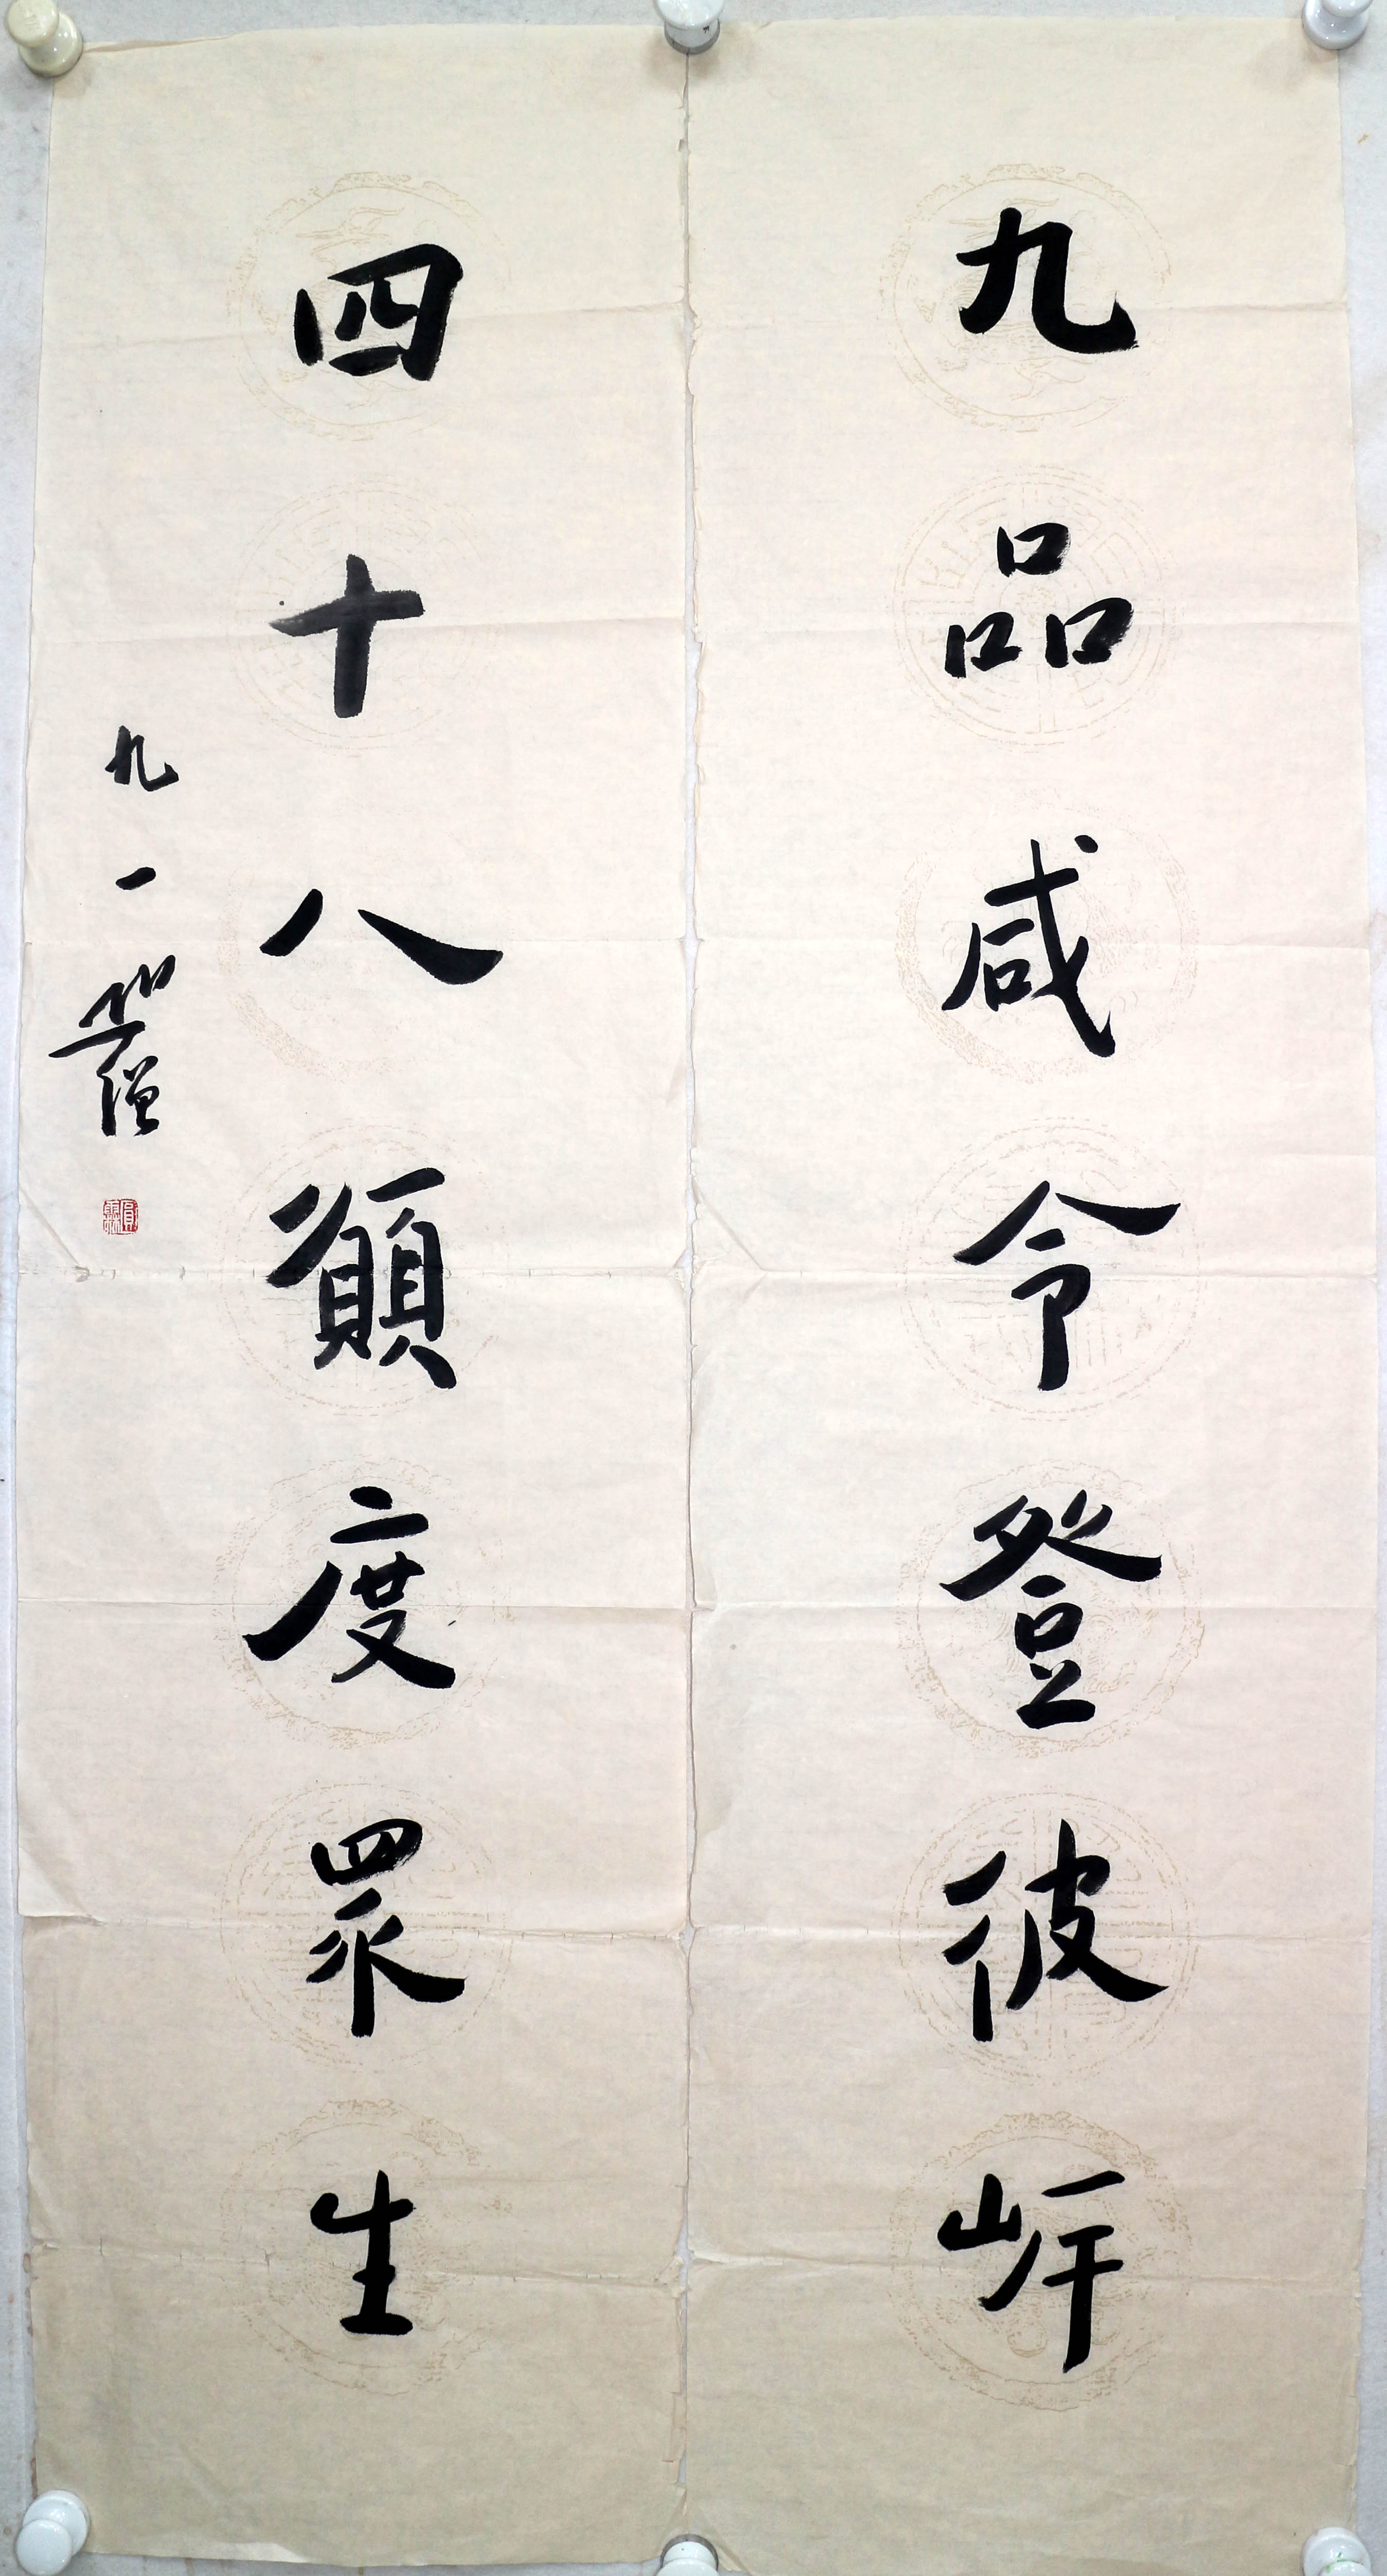 九品咸令登彼岸
四十八願度眾生
九一叟僧
圓霖